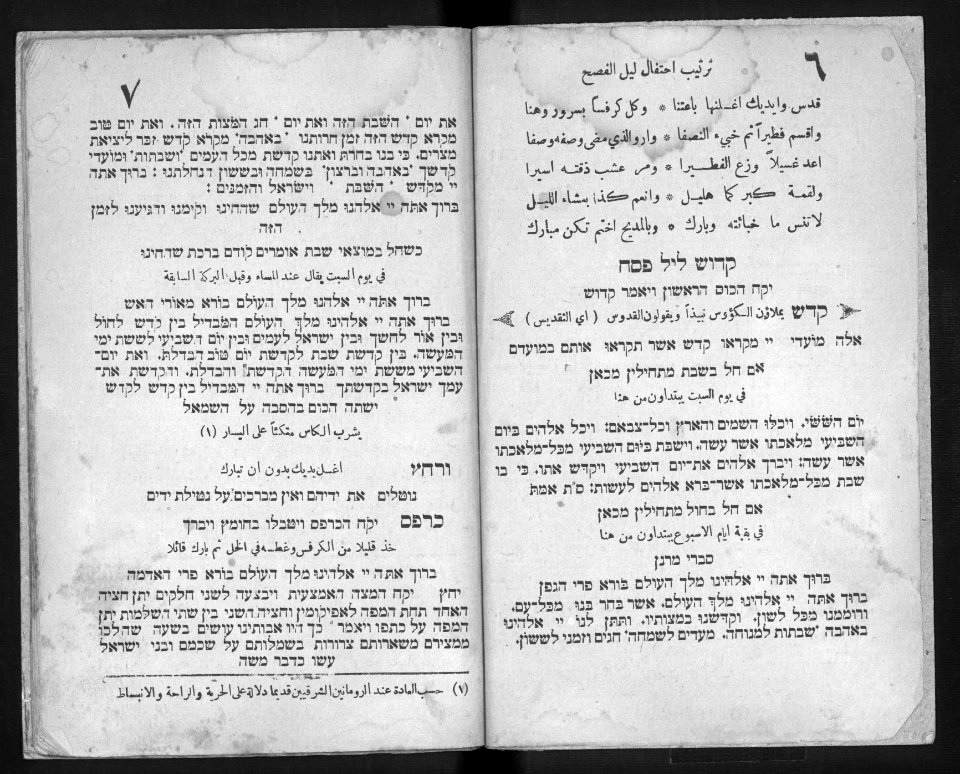 ٦
ترتيب احتفال ليل الفصح
قدس وايديك اغسلنها باعتنا * وكل كرفساً بسرور وهنا
واقسم فطيراً ثم خبيء النصفا * وارو الذي مضى وصفه وصفا
اعد غسيلاً وزع الفطيرا * ومر عشب ذقته اسيرا
ولقمة كبر كما هليل * وانعم كذا بعشاء الليل
لا تنس ما خبائته وبارك * وبالمديح اختم تكن مبارك
קדוש ליל פסח
יקח הכוס הראשון ויאמר קדוש
קדש يملاؤن الكؤوس نبيذاً ويقولون القدوس ( اي التقديس )
אלה מועדי יי מקראי קדש אשר תקראו אותם במועדם
אם חל בשבת מתחילין מכאן
في يوم السبت يبتداون من هنا
יום הששי. ויכלו השמים והארץ וכל־צבאם: ויכל אלהים ביום
השביעי מלאכתו אשר עשה. וישבת ביום השביעי מכל־מלאכתו
אשר עשה: ויברך אלהים את־יום השביעי ויקדש אתו. כי בו
שבת מכל־מלאכתו אשר־ברא אלהים לעשות: ס״ת אמת
אם חל בחול מתחילין מכאן
في بقية ايام الاسبوع يبتداون من هنا
סברי מרנן
ברוך אתה יי אלהינו מלך העולם בורא פרי הגפן
ברוך אתה יי אלהינו מלך העולם. אשר בחר בנו מכל־עם.
ורוממנו מכל לשון. וקדשנו במצותיו. ותתן לנו יי אלהינו
באהבה ׳שבתות למנוחה. מעדים לשמחה׳ חגים וזמני לששון.
٧
את יום ׳ השבת הזה ואת יום ׳ חג המצות הזה. ואת יום טוב
מקרא קדש הזה זמן חרותנו ׳ באהבה׳ מקרא קדש זכר ליציאת
מצרים. כי בנו בחרת ואתנו קדשת מכל העמים ׳ושבתות׳ ומועדי
קדשך ׳באהבה וברצון׳ בשמחה ובששון הנחלתנו: ברוך אתה
יי מקדש ׳ השבת ׳ וישראל והזמנים:
ברוך אתה יי אלהינו מלך העולם שהחינו וקימנו והגיענו לזמן
הזה
כשחל במוצאי שבת אומרים קודם ברכת שהחינו
في يوم السبت يقال عند المساء وقبل البركة السابقة
ברוך אתה יי אלהינו מלך העולם בורא מאורי האש
ברוך אתה יי אלהינו מלך העולם המבדיל בין קדש לחול
ובין אור לחשך ובין ישראל לעמים ובין יום השביעי לששת ימי
המעשה. בין קדשת שבת לקדשת יום טוב הבדלת. ואת יום־
השביעי מששת ימי המעשה הקדשת. והבדלת. והקדשת את־
עמך ישראל בקדשתך ברוך אתה יי המבדיל בין קדש לקדש
ישתה הכוס בהסבה על השמאל
يشرب الكاس متكئاً على اليسار (١)
ורחץ اغسل يديك بدون ان تبارك
נוטלים את ידיהם ואין מברכים על נטילת ידים
כרפס יקח הכרפס ויטבלו בחומץ ויברך
خذ قليلا من الكرفس وغطسه في الخل ثم بارك قائلا
ברוך אתה יי אלהינו מלך העולם בורא פרי האדמה
יחץ יקח המצה האמצעית ויבצעה לשני חלקים יתן חציה
האחד תחת המפה לאפיקומין וחציה השני בין שתי השלמות יתן
המפה על כתפו ויאמר ׳ כך היו אבותינו עושים בשעה שהלכו
ממצרים משארותם צרורות בשמלותם על שכמם ובני ישראל
עשו כדבר משה
(٧) حسب العادة عند الرومانين الشرقيين قديما دلالة على الحرية والراحة والانبساط